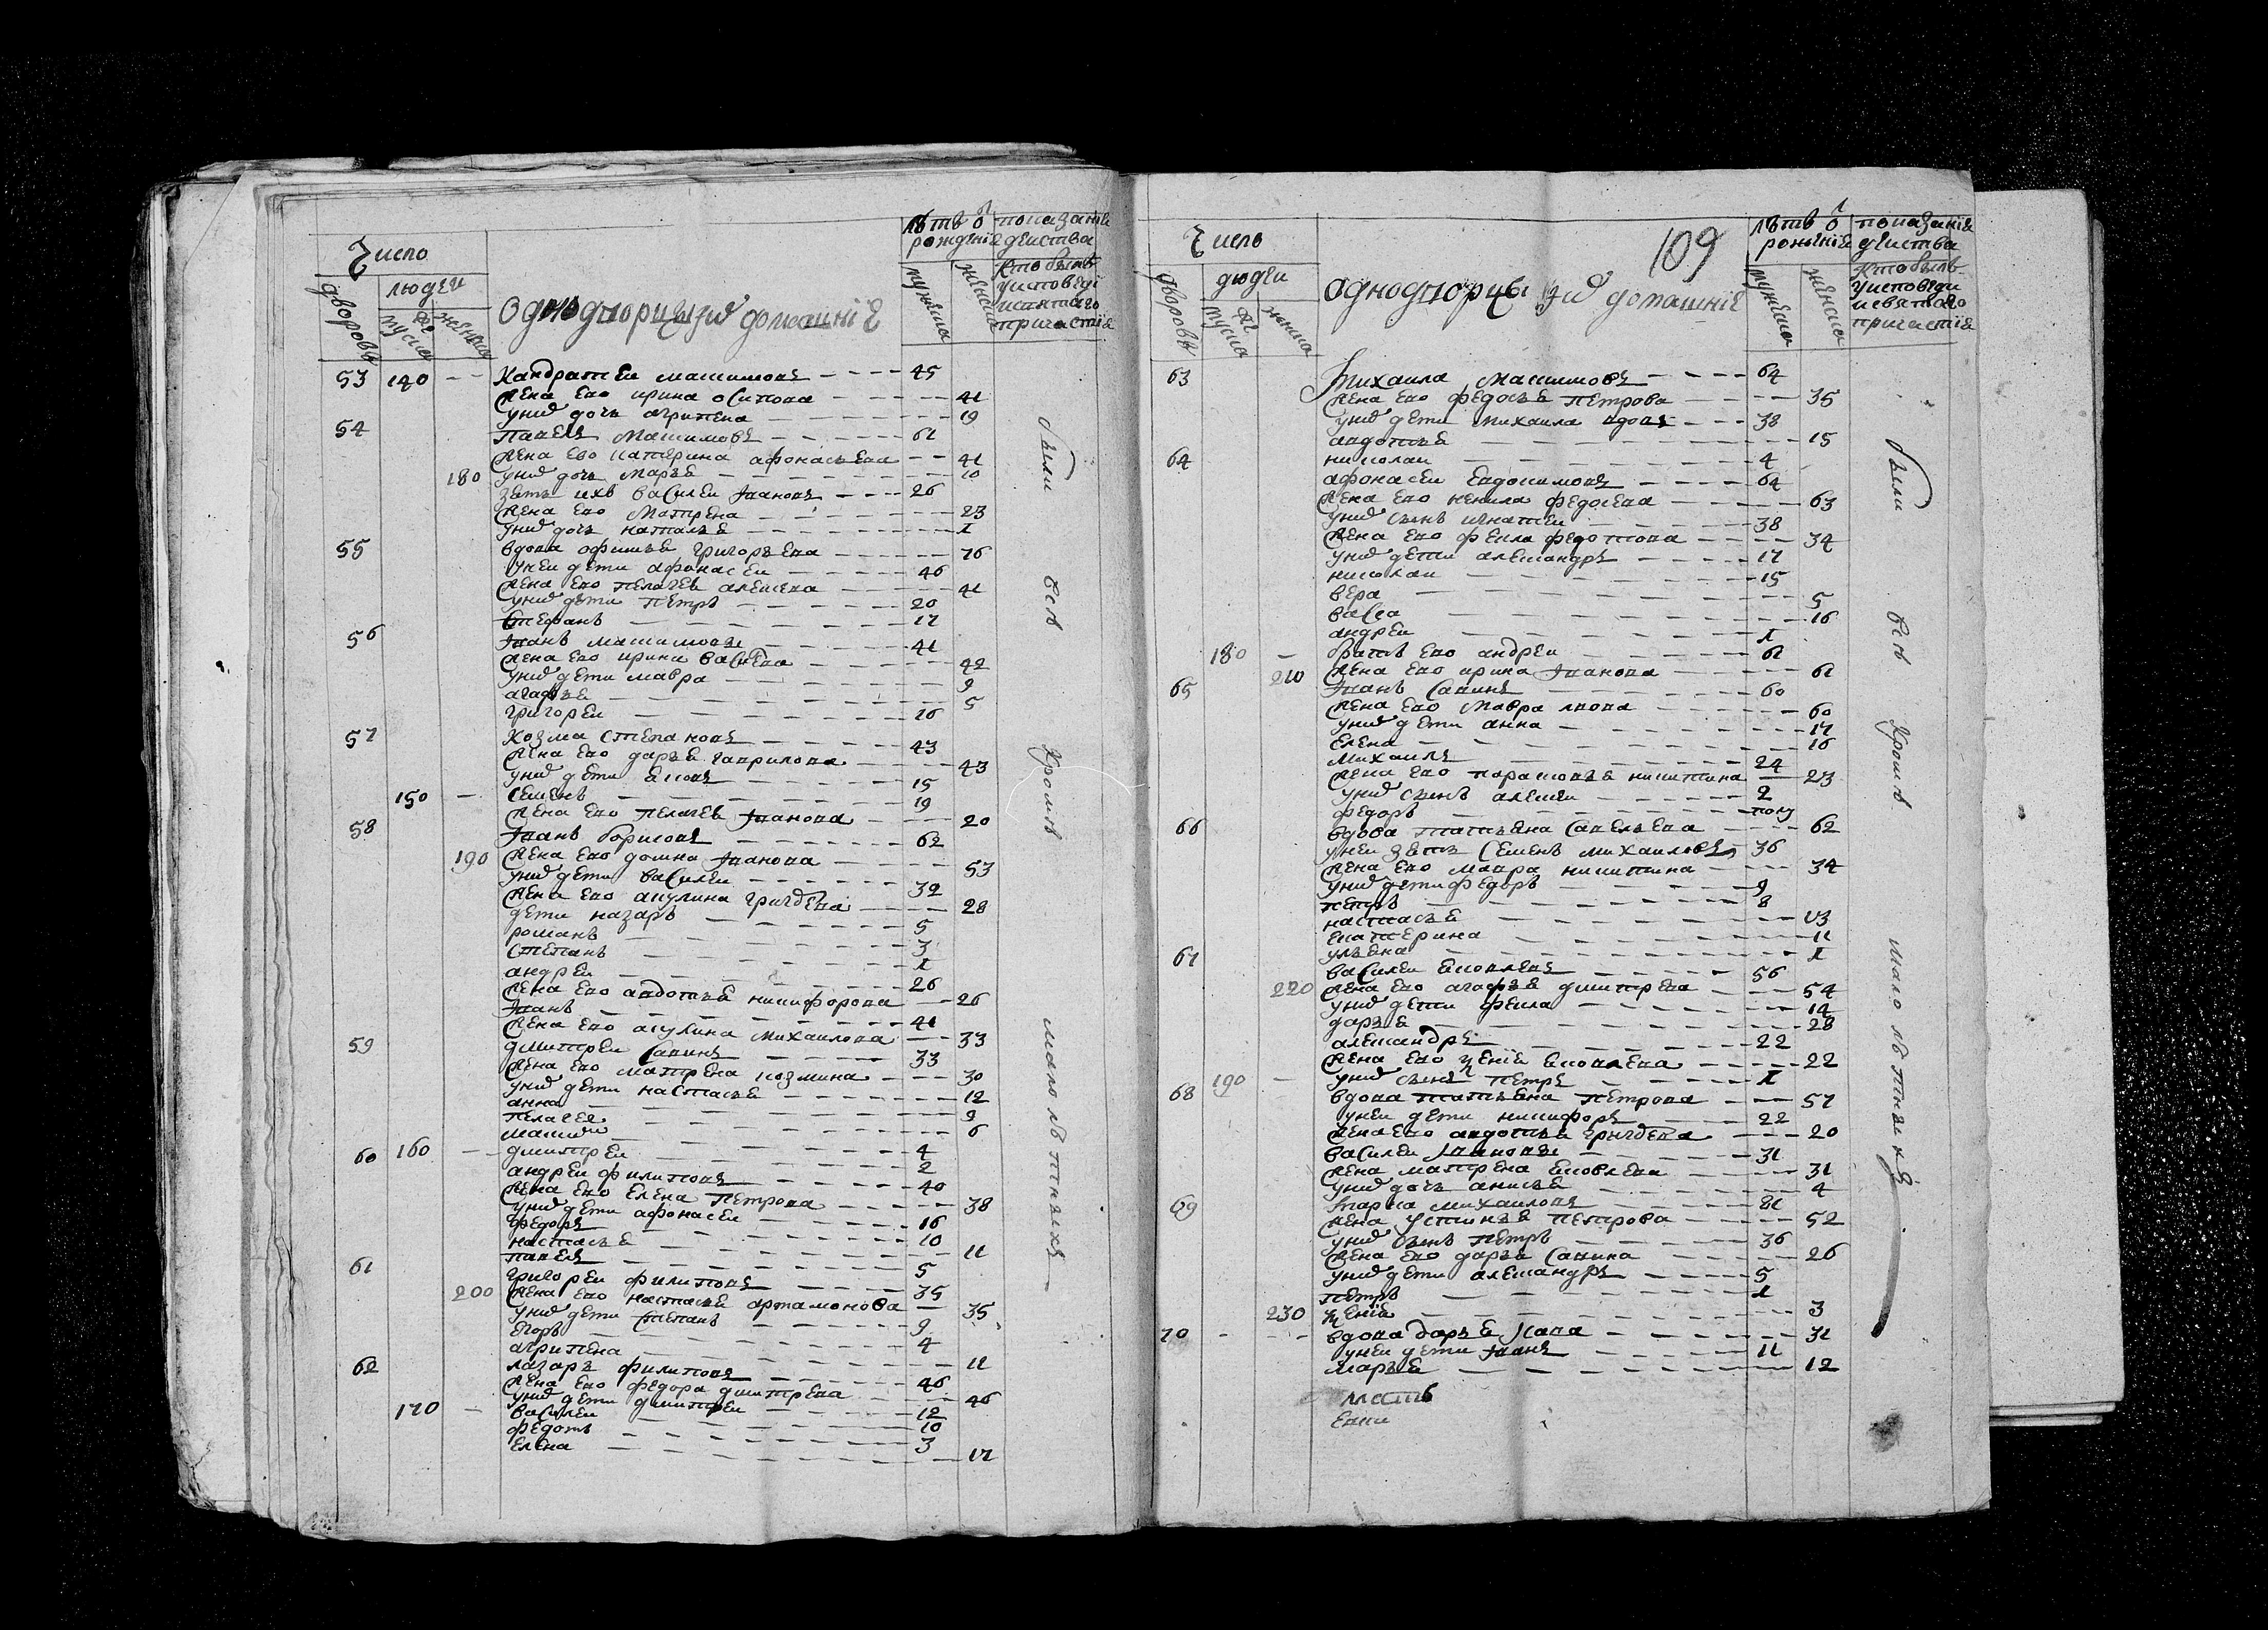 Число
дворовъ
людеи
мужеска
женска
Однодворцы и ихъ домашнiе
лѣтъ ѿ рожденiе
мужеска
женска
показанiе деиства
кто былъ
у исповеди
и святаго
причастiе
53 140 Кандратеи Максимовъ 45
Жена ево ирина осипова 41
у них дочь агрипена 19
54 Павелъ Максимовъ 61
Жена ево катерина афонасьева 41
180 у них дочь марья 10
зять ихъ василеи Iвановъ 26
Жена ево матрена 23
у них дочь наталья 1
55 вдова офимья григорьева 76
у неи дети афонасеи 46
Жена ево пелагея алексева 41
у них дети петръ 20
Степанъ 17
56 Iванъ максимовъ 41
Жена ево ирина 42
у них дети мавра 9
агафья 5
григореи 16
57 Козма Степановъ 43
Жена ево дарья гаврилова 43
у них дети 15
150 Семенъ 19
Жена ево пелагея Iванова 20
58 Iванъ борисовъ 62
190 Жена ево домна Iванова 53
у них дети василеи 32
Жена ево акулина 28
дети назаръ 5
романъ 3
Степанъ 1
андреи 26
Жена ево авдотья никифорова 26
Iванъ 41
Жена ево акулина михаилова 33
59 дмитреи Савинъ 33
Жена ево матрена козмина 30
у них дети настасья 12
анна 9
пелагея 6
максим
60 160 дмитреи 4
андреи филиповъ 2
Жена ево елена петрова 40
у них дети афонасеи 38
федоръ 16
настасья 10
павелъ 11
61 григореи филиповъ 5
200 Жена ево настасья артамонова 35
у них дети Степанъ 35
егоръ 9
агрипена 4
62 лазарь филиповъ 11
Жена ево федора дмитрева 46
у них дети дмитреи 46
170 василеи 12
федотъ 10
елена 3
17
были всѣ Кромѣ малолѣтныхъ
Число
дворовъ
людеи
мужеска
женска
109
однодворцы и ихъ домашнiе
лѣтъ ѿ рожeнiе
мужеска
женска
показанiе деиства
кто былъ
у исповеди
и святаго
причастiе
63 Михаила Максимовъ 64
Жена ево федосья петрова 35
у них дети михаила вдовъ 38
авдотья 15
64 николаи 4
афонасеи евдокимовъ 64
Жена ево ненила федосева 63
у них сынъ игнатеи 38
Жена ево фекла федотова 34
у них дети александръ 17
николаи 15
вера 5
васса 16
андреи 1
180 братъ ево андреи 61
210 Жена ево ирина Iванова 61
65 Iванъ Савинъ 60
Жена ево мавра 60
у них дети анна 17
елена 16
михаилъ 24
Жена ево парасковья никитина 23
у них сынъ алексеи 2
федоръ полу
66 вдова татьяна Савельева 62
у неи зять Семенъ михаиловъ 36
Жена ево мавра никитина 34
у них дети федоръ 9
петръ 8
настасья 13
екатерина 11
ульяна 1
67 василеи яковлевъ 56
220 Жена ево агафья дмитрева 54
у них дети фекла 14
дарья 28
александръ 22
Жена ево яковлева 22
190 у них сынъ петръ 1
68 вдова татьяна петрова 57
у неи дети никифоръ 22
Жена ево авдотья 20
василеи Iвановъ 31
Жена матрена яковлева 31
у них дочь анисья 4
69 Марка михаиловъ 81
Жена устинья петрова 52
у них сынъ петръ 36
Жена ево дарья Савина 26
у них дети александръ 5
петръ 1
230 3
70 вдова дарья 31
у неи дети Iванъ 11
марья 12
были всѣ Кромѣ малолѣтныхъ